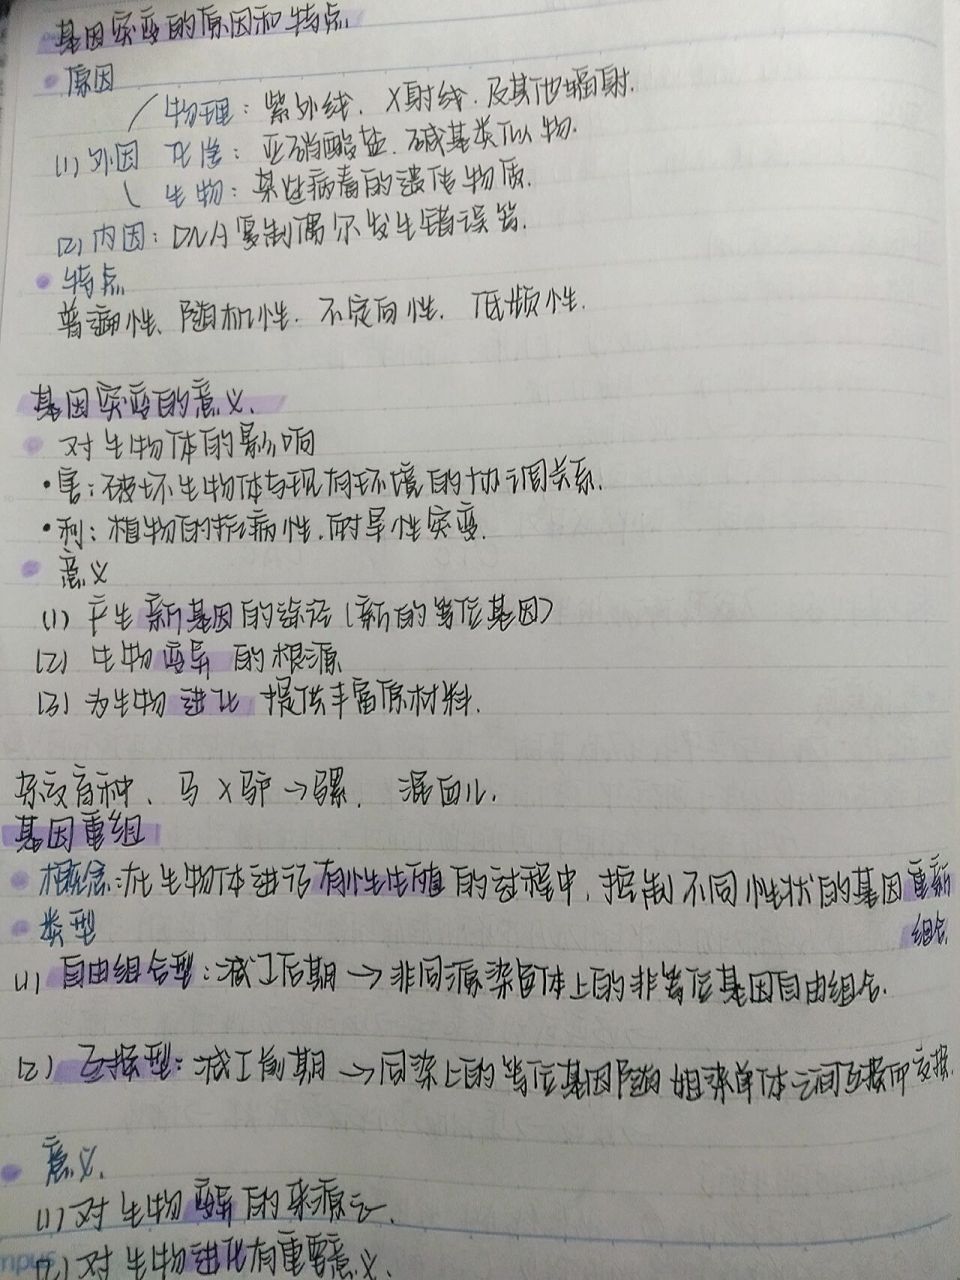 基因突变的原因和特点
原因
物理：紫外线、X射线、及其他辐射.
(1) 外因 化学：亚硝酸盐、碱基类似物.
生物：某些病毒的遗传物质.
(2) 内因：DNA复制偶尔发生错误等.
特点
普遍性、随机性、不定向性、低频性.
基因突变的意义.
对生物体的影响
·害：破坏生物体与现有环境的协调关系.
·利：植物的抗病性、耐旱性突变.
意义
(1) 产生新基因的途径(新的等位基因)
(2) 生物变异的根源
(3) 为生物进化提供丰富原材料.
杂交育种、马×驴→骡、混血儿.
基因重组
概念：在生物体进行有性生殖的过程中，控制不同性状的基因重新
组合
类型
(1) 自由组合型：减Ⅰ后期→非同源染色体上的非等位基因自由组合.
(2) 互换型：减Ⅰ前期→同染上的等位基因随姐染单体之间互换而交换.
意义.
(1) 对生物变异的来源之一.
(2) 对生物进化有重要意义.
mpus